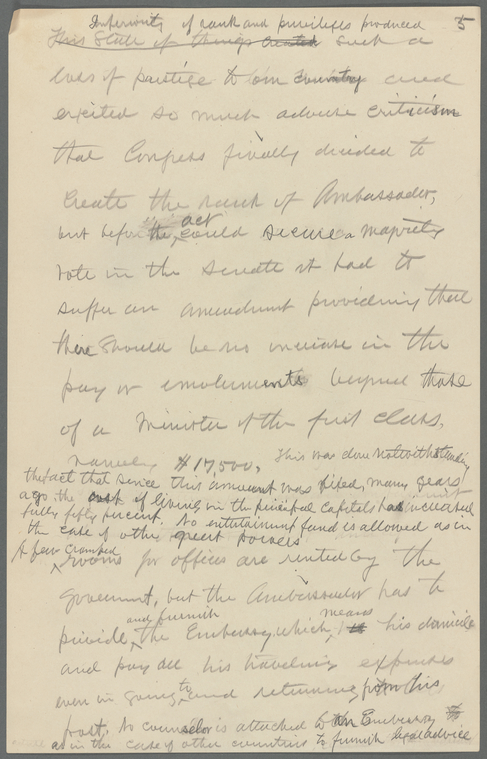 5
Inferiority of rank and privileges produced
This State of things created such a
loss of prestige to our country and
excited so much adverse criticism
that Congress finally decided to
create the rank of Ambassador,
but before the act could secure a majority
vote in the Senate it had to
suffer an amendment providing that
there should be no increase in the
pay or emoluments beyond those
of a Minister of the first class,
namely $17,500, This was done notwithstanding
the fact that since this amount was fixed, many years
ago the cost of living in the principal capitals has increased
fully fifty percent. No entertainment fund is allowed as in
the case of other great powers
A few cramped
rooms for offices are rented by the
government, but the Ambassador has to
and furnish
provide, the Embassy, which means his domicile
and pay all his traveling expenses
even in going to and returning from his
post. No counselor is attached to an Embassy
as in the case of other countries to furnish legal advice